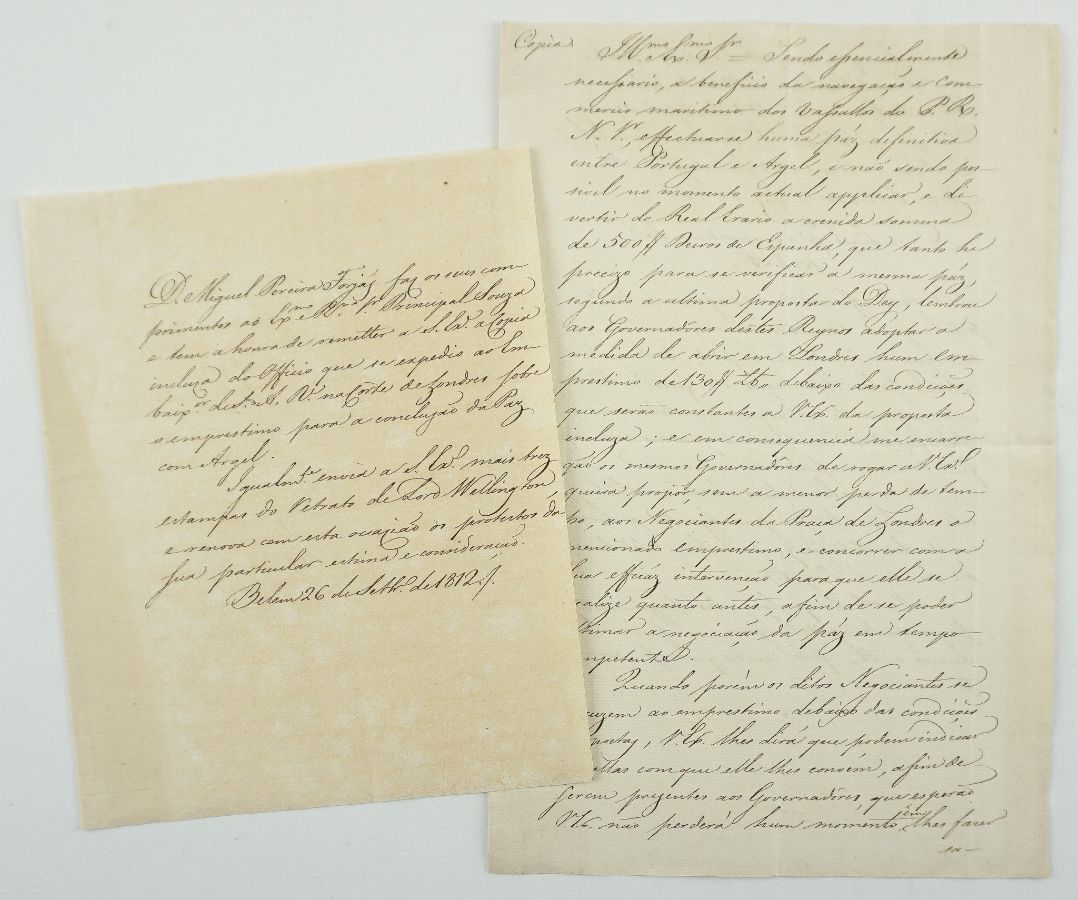 D. Miguel Pereira Forjaz faz os seus com-
primentos ao Exmo e Rmo Sr. Principal Souza
e tem a honra de remetter a S. Exa. a Copia
incluza do Officio que se expedio ao Em-
baixor. de S. A. R. na Corte de Londres sobre
o emprestimo para a concluzão da Paz
com Argel.
Igualmte. envia a S. Exa. mais trez
estampas do Retrato de Lord Wellington,
e renova com esta occazião os protestos da
sua particular estima e consideração.
Belem 26 de Setbro. de 1812.
Copia
Illmo. Exmo. Sr. = Sendo essencialmente
necessario, a beneficio da navegação e com-
mercio maritimo dos Vassallos do P. R.
N. Sr., effectuarse huma páz definitiva
entre Portugal e Argel, e não sendo pos-
sivel no momento actual applicar, e di-
vertir do Real Erario a crescida somma
de 500 ff Duros de Espanha, que tanto he
precizo para se verificar a mesma páz,
segundo a ultima proposta do Day, lembrou
aos Governadores destes Reynos adoptar a
medida de abrir em Londres hum em-
prestimo de 130 ff Lb. debaixo das condições
que serão constantes a V. Ex. da proposta
incluza; e em consequencia me encarre-
gão os mesmos Governadôres de rogar a V. Exa.
queira propôr sem a menor perda de tem-
po, aos Negociantes da Praça de Londres o
mencionado emprestimo, e concorrer com a
sua efficáz intervenção para que elle se
realize quanto antes, a fim de se poder
ultimar a negociação da páz em tempo
competente.
Quando porém os ditos Negociantes se
recuzem ao emprestimo debaixo das condições
propostas, V. Ex. lhes dirá que podem indicar
aquellas com que elle lhes convém, a fim de
serem prezentes aos Governadôres, que esperão
V. Ex. não perderá hum momento em lhes fazer
sa-